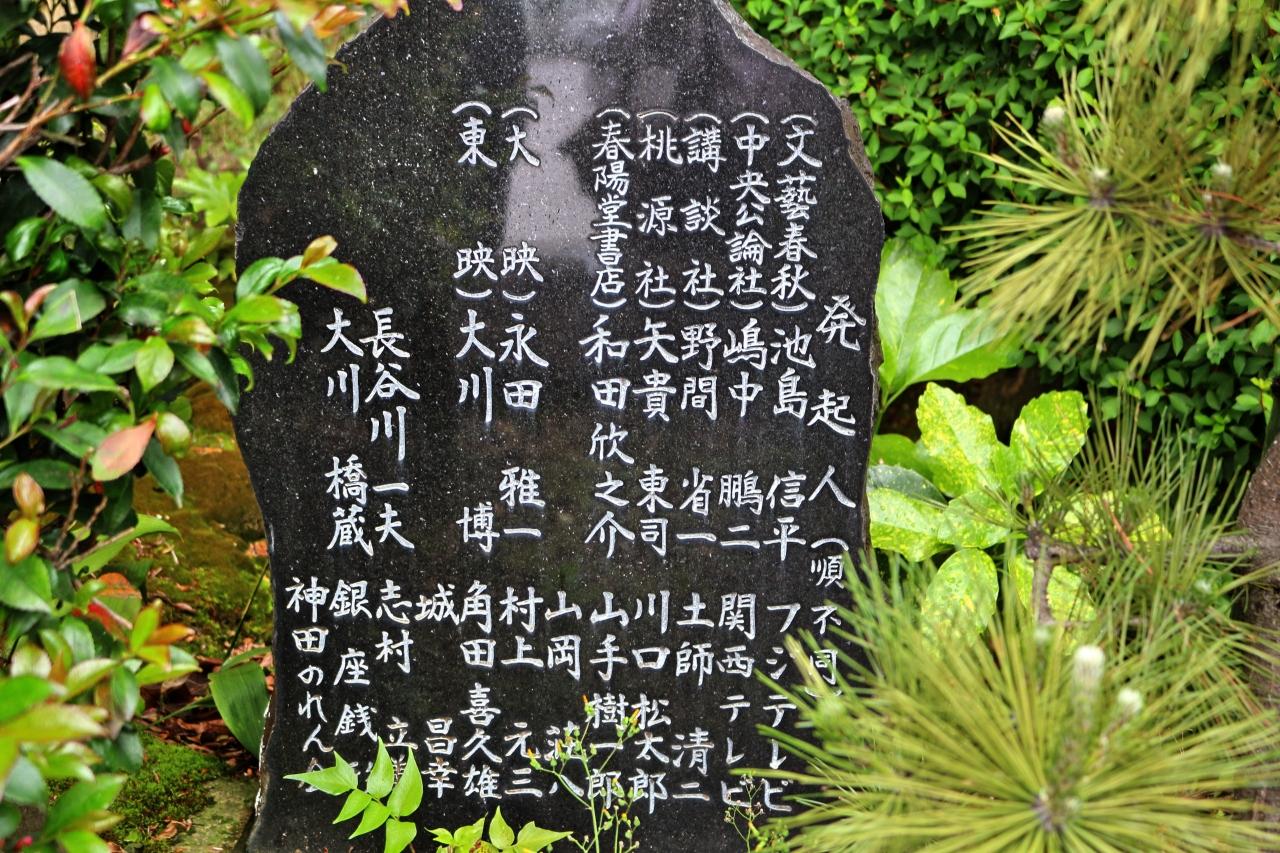 発起人（順不同）
（文藝春秋）池島信平 フジテレビ
（中央公論社）嶋中鵬二 関西テレビ
（講談社）野間省一 土師清二
（桃源社）矢貴東司 川口松太郎
（春陽堂書店）和田欣之介 山手樹一郎
山岡荘八
（大映）永田雅一 村上元三
（東映）大川博 角田喜久雄
城昌幸
長谷川一夫 志村立美
大川橋蔵 銀座銭
神田のれん会